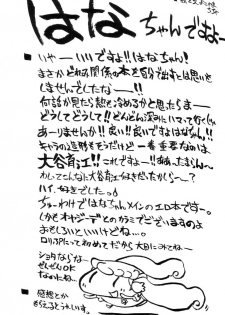 はなちゃんですよー
■ いやーいいですよ!!はなちゃん!
まさかどれみ関係の本を自分で出すとは思いも
しませんでしたなー!!
何話か見たら熱も冷めるかと思たらまー
どうしてどうして!!どんどん深みにハマって行くじゃ
あーりませんか!!良い!!良いですなはなちゃん!!
キャラの造形もそうだけど一番重要なのは、
大谷育江!!これですよー!!
わしってこんなに大谷育江好きだったかしらー?
ハイ、好きでした。
ちゅーわけではなちゃんメインのエロ本ですー。
(しかもオヤジーデとのカラミでございますのよ
おもしろいといいけどねい…
ロリぷにって初めてだから大目にみとねー
ショタならなー
ぜんぜんOK
なのにねー
■ 感想とか
もらえるとうれしいす。